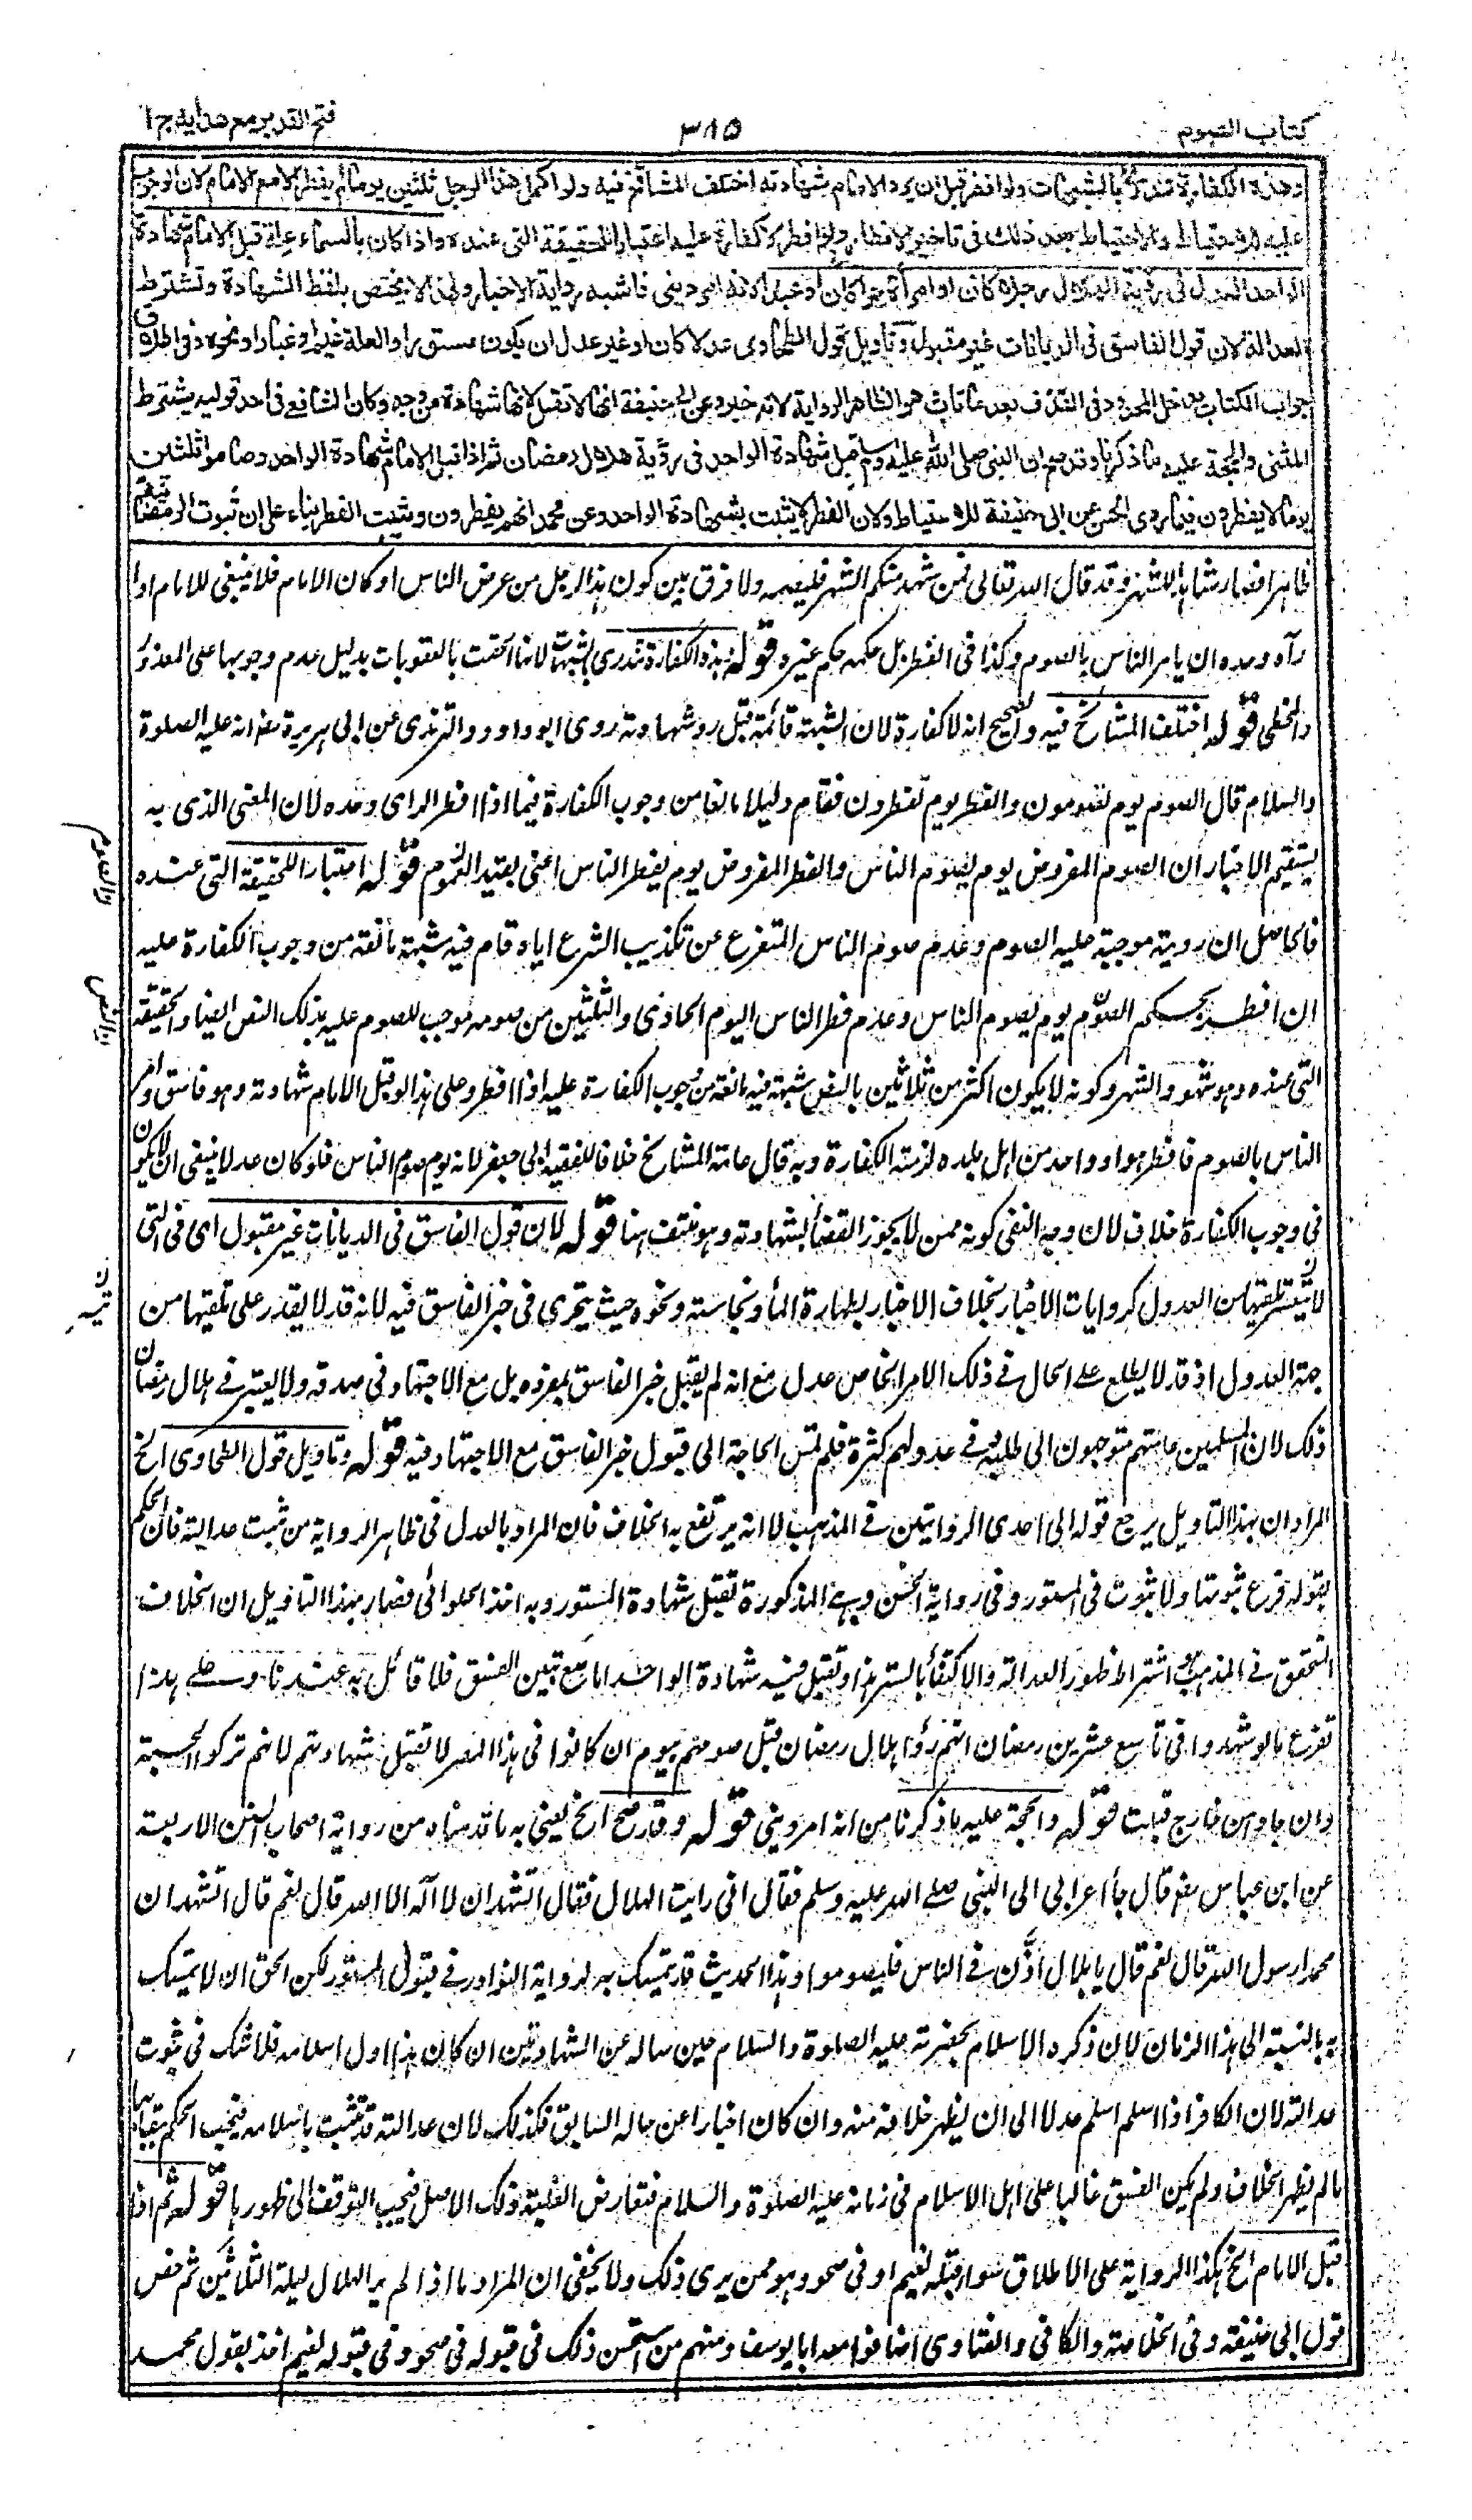 كتاب الصوم
٣٨٥
فتح القدير مع هداية ج ١
وهذه الكفارة تندرئ بالشبهات ولو افطر قبل ان يرد الامام شهادته اختلف المشائخ فيه ولو اكمل هذا الرجل ثلثين يوما لم يفطر الا مع الامام لان الوجوب
عليه للاحتياط والاحتياط بعد ذلك في تاخير الافطار ولو افطر لا كفارة عليه اعتبارا للحقيقة التى عنده واذا كان بالسماء علة قبل الامام شهادة
الواحد العدل في رؤية الهلال رجلا كان او امرأة حرا كان او عبدا لانه امر ديني فاشبه رواية الاخبار ولهذا لا يختص بلفظ الشهادة وتشترط
العدالة لان قول الفاسق في الديانات غير مقبول وتاويل قول الطحاوي عدلا كان او غير عدل ان يكون مستورا والعلة غيم او غبار او نحوه وفي اطلاق
جواب الكتاب يدخل المحدود في القذف بعد ما تاب وهو ظاهر الرواية لانه خبر وعن ابي حنيفة انها لا تقبل لانها شهادة من وجه وكان الشافعي في احد قوليه يشترط
المثنى والحجة عليه ما ذكرنا وقد صح ان النبى صلى الله عليه وسلم قبل شهادة الواحد في رؤية هلال رمضان ثم اذا قبل الامام شهادة الواحد وصاموا ثلثين
يوما لا يفطرون فيما روى الحسن عن ابى حنيفة للاحتياط ولان الفطر لا يثبت بشهادة الواحد وعن محمد انهم يفطرون ويثبت الفطر بناء على ان ثبوت الرمضانية
ظاهرا فصار شاهدا للشهر وقد قال الله تعالى فمن شهد منكم الشهر فليصمه ولا فرق بين كون هذا الرجل من عرض الناس او كان الامام فلا ينبغي للامام اذا
رآه وحده ان يامر الناس بالصوم وكذا في الفطر بل حكمه حكم غيره قوله وهذه الكفارة تندرئ بالشبهات لانها الحقت بالعقوبات بدليل عدم وجوبها على المعذور
والمخطئ قوله اختلف المشائخ فيه والصحيح انه لا كفارة لان الشبهة قائمة قبل رد شهادته روى ابو داود والترمذى عن ابى هريرة رضـ انه عليه الصلوة
والسلام قال الصوم يوم تصومون والفطر يوم تفطرون فقام دليلا مانعا من وجوب الكفارة فيما اذا افطر الرائى وحده لان المعنى الذى به
يستقيم الاخبار ان الصوم المفروض يوم يصوم الناس والفطر المفروض يوم يفطر الناس اعنى بقيد العموم قوله اعتبارا للحقيقة التى عنده
فالحاصل ان رويته موجبة عليه الصوم وعدم صوم الناس المتفرع عن تكذيب الشرع اياه قام فيه شبهة مانعة من وجوب الكفارة عليه
ان افطر بحكم الصوم يوم يصوم الناس وعدم فطر الناس اليوم الحادى والثلثين من صومه موجب للصوم عليه بذلك النص ايضا والحقيقة
التى عنده وهو شهود الشهر وكونه لا يكون اكثر من ثلاثين بالنص شبهة فيه مانعة من وجوب الكفارة عليه اذا افطر وعلى هذا لو قبل الامام شهادته وهو فاسق وامر
الناس بالصوم فافطر هو او واحد من اهل بلده لزمته الكفارة وبه قال عامة المشائخ خلافا للفقيه ابى جعفر لانه يوم صوم الناس فلو كان عدلا ينبغى ان لا يكون
فى وجوب الكفارة خلاف لان وجه النفى كونه ممن لا يجوز القضاء بشهادته وهو منتف هنا قوله لان قول الفاسق فى الديانات غير مقبول اى فى التى
لا يتعسر تلقيها من العدول كروايات الاخبار بخلاف الاخبار بطهارة الماء ونجاسته ونحوه حيث يتحرى فى خبر الفاسق فيه لانه قد لا يقدر على تلقيها من
جهة العدول اذ قد لا يطلع على الحال فى ذلك الامر الخاص عدل مع انه لم يقبل خبر الفاسق بمفرده بل مع الاجتهاد فى صدقه ولا يعتبر فى هلال رمضان
ذلك لان المسلمين عامتهم متوجهون الى طلبه وفى عدولهم كثرة فلم تمس الحاجة الى قبول خبر الفاسق مع الاجتهاد فيه قوله وتاويل قول الطحاوى الخ
المراد ان بهذا التاويل يرجع قوله الى احدى الروايتين فى المذهب لا انه يرتفع به الخلاف فان المراد بالعدل فى ظاهر الرواية من ثبتت عدالته فان الحكم
بقوله فرع ثبوتها ولا ثبوت فى المستور وفى رواية الحسن وهى المذكورة تقبل شهادة المستور وبه اخذ الحلوائى فصار بهذا التاويل ان الخلاف
المتحقق فى المذهب هو اشتراط ظهور العدالة والاكتفاء بالستر هذا وتقبل فيه شهادة الواحد اما مع تبين الفسق فلا قائل به عندنا وعلى هذا
تفرع ما لو شهدوا فى تاسع عشرين رمضان انهم رؤا هلال رمضان قبل صومهم بيوم ان كانوا فى هذا المصر لا تقبل شهادتهم لانهم تركوا الحسبة
وان جاوا من خارج قبلت قوله والحجة عليه ما ذكرنا من انه امر دينى قوله وقد صح الخ يعنى به ما قدمناه من رواية اصحاب السنن الاربعة
عن ابن عباس رضـ قال جاء اعرابى الى النبى صلى الله عليه وسلم فقال انى رايت الهلال فقال اتشهد ان لا اله الا الله قال نعم قال اتشهد ان
محمدا رسول الله قال نعم قال يا بلال اذن فى الناس فليصوموا وهذا الحديث قد يتمسك به لرواية النوادر فى قبول المستور لكن الحق ان لا يتمسك
به بالنسبة الى هذا الزمان لان ذكره الاسلام بحضرته عليه الصلوة والسلام حين ساله عن الشهادتين ان كان هذا اول اسلامه فلا شك فى ثبوت
عدالته لان الكافر اذا اسلم اسلم عدلا الى ان يظهر خلافه منه وان كان اخبارا عن حاله السابق فكذلك لان عدالته قد ثبتت باسلامه فيجب الحكم ببقائها
ما لم يظهر الخلاف ولم يكن الفسق غالبا على اهل الاسلام فى زمانه عليه الصلوة والسلام فتعارض الغلبة ذلك الاصل فيجب التوقف الى ظهورها قوله ثم اذا
قبل الامام الخ هكذا الرواية على الاطلاق سواء قبله لغيم او فى صحو وهو ممن يرى ذلك ولا يخفى ان المراد ما اذا لم ير الهلال ليلة الثلاثين ثم خص
قول ابى حنيفة وفى الخلاصة والكافى والفتاوى اضافوا معه ابا يوسف ومنهم من استحسن ذلك فى قبوله فى صحو وفى قبوله لغيم اخذ بقول محمد